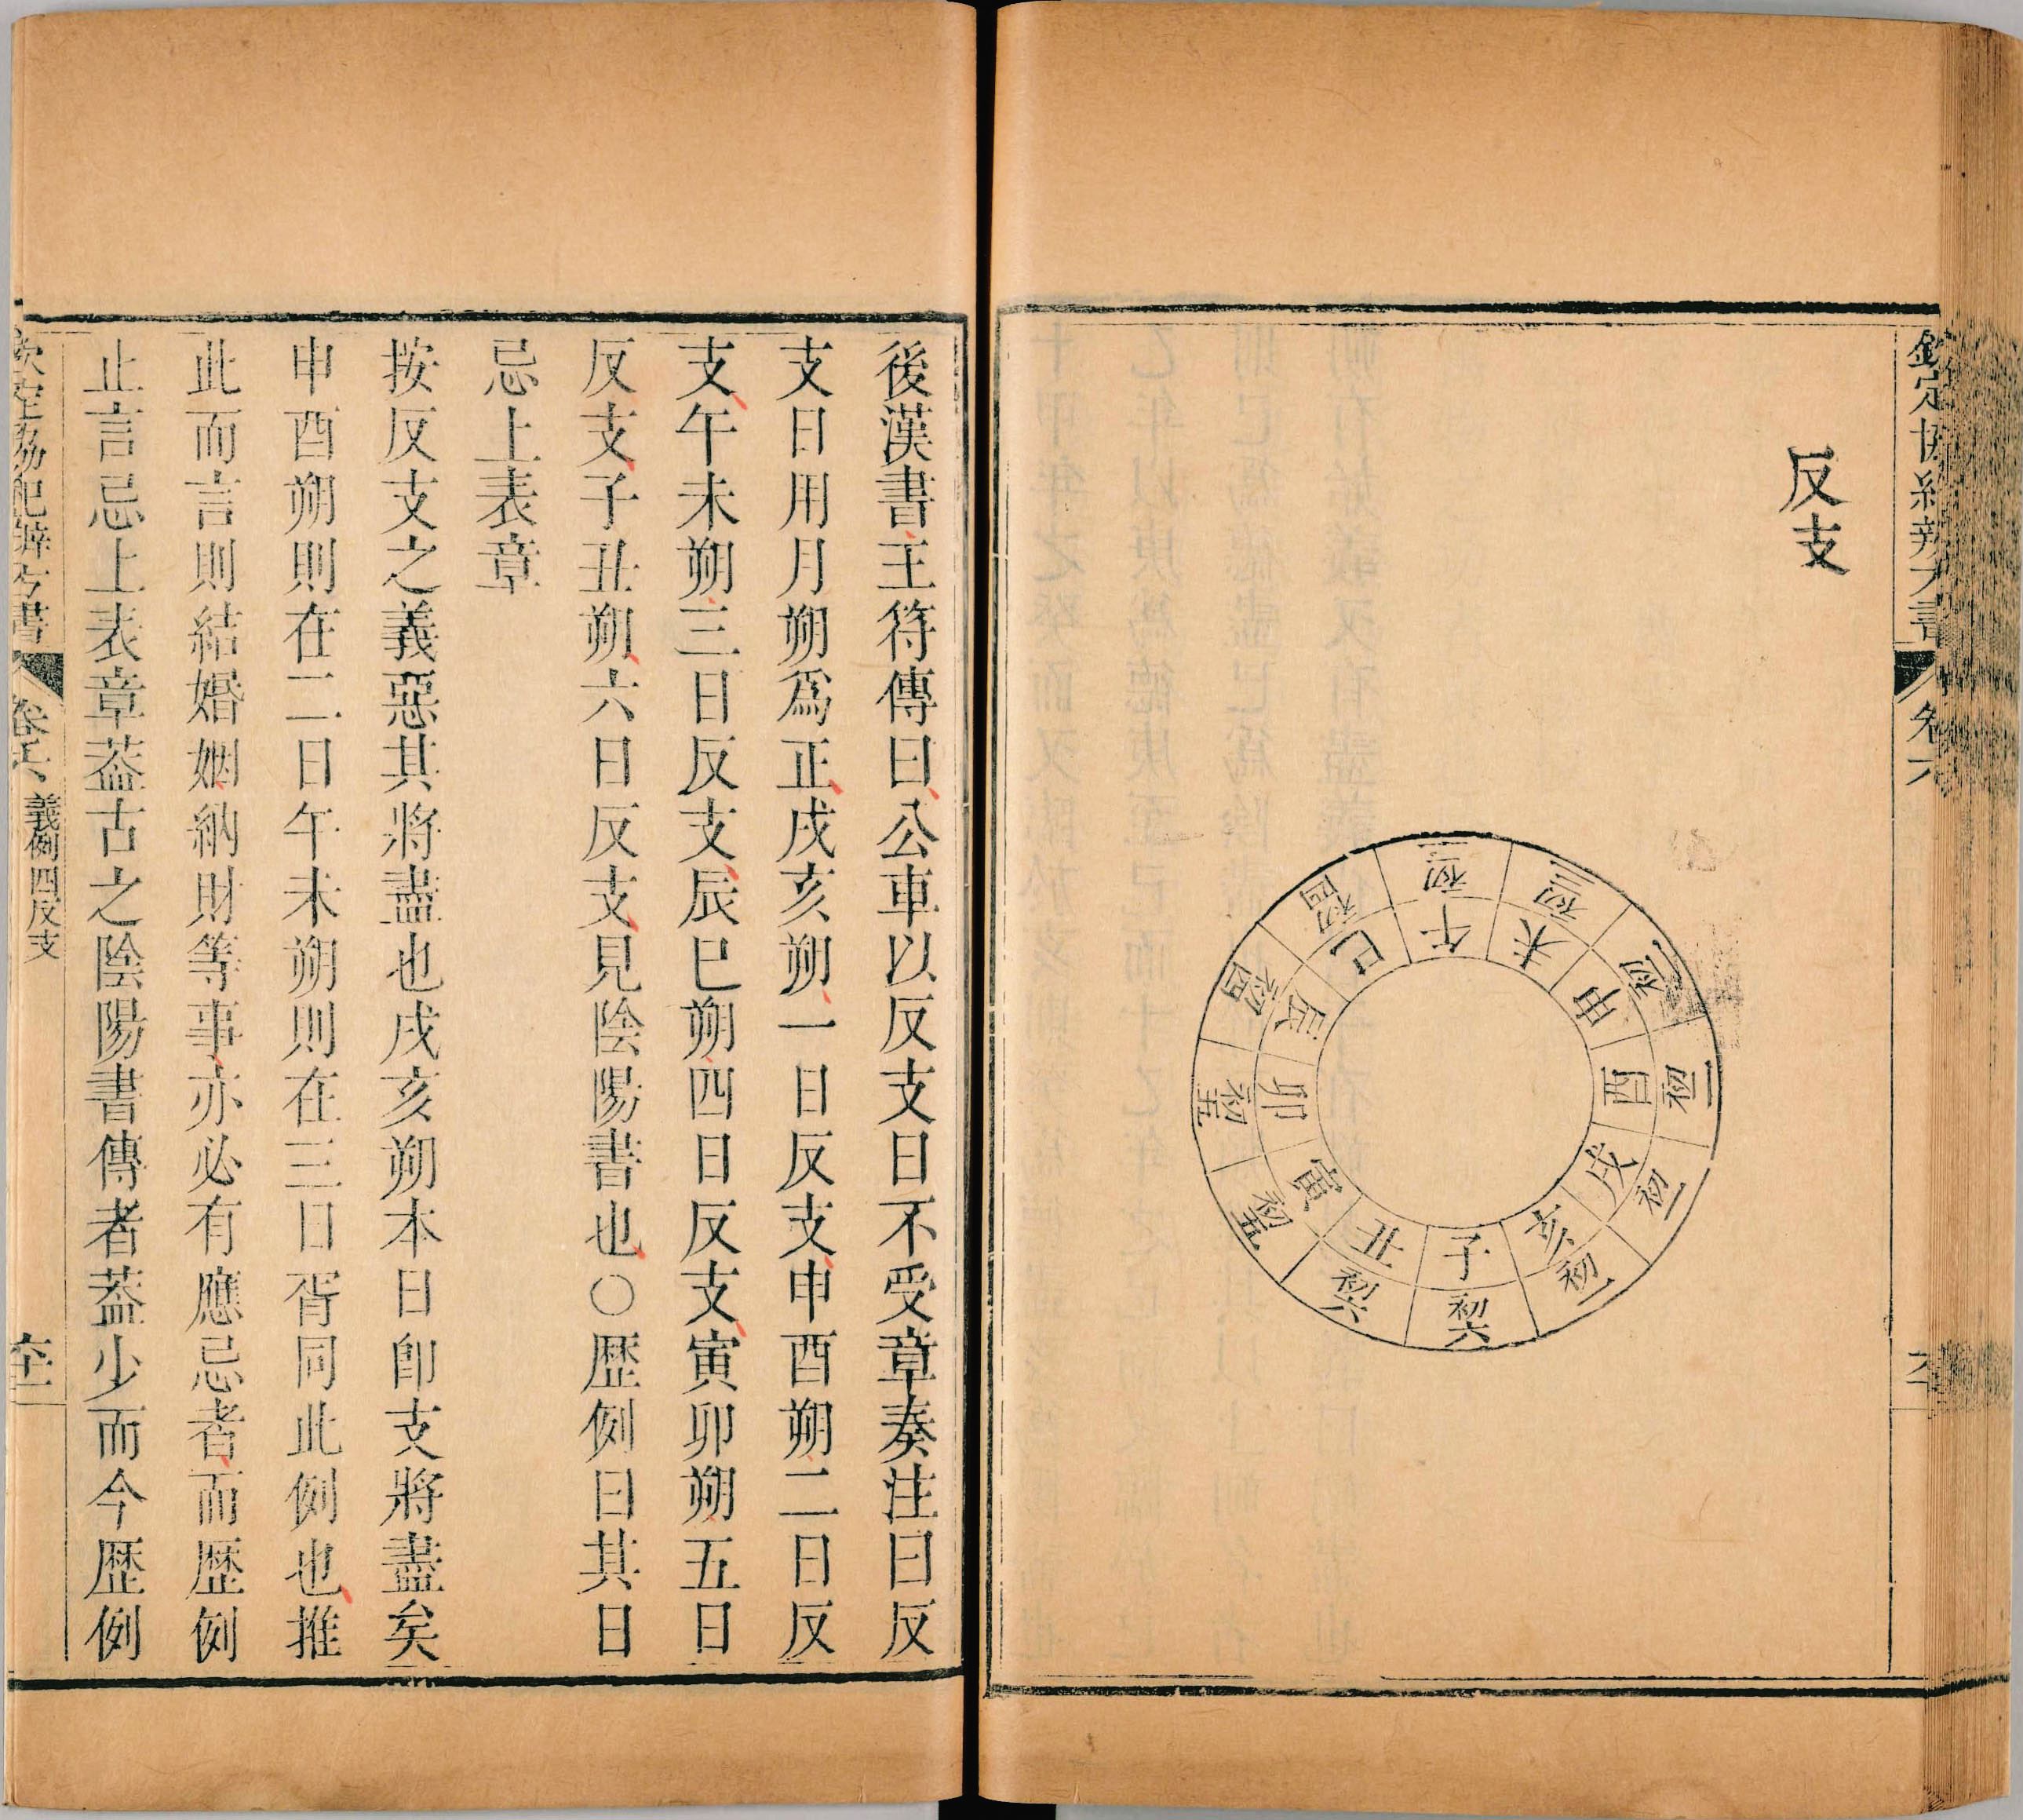 欽定協紀辨方書
卷六
反支
午 初三
未 初三
申 初二
酉 初二
戌 初一
亥 初一
子 初六
丑 初六
寅 初五
卯 初五
辰 初四
巳 初四
後漢書王符傳曰公車以反支日不受章奏注曰反
支日用月朔爲正戌亥朔一日反支申酉朔二日反
支午未朔三日反支辰巳朔四日反支寅卯朔五日
反支子丑朔六日反支見陰陽書也○歴例曰其日
忌上表章
按反支之義惡其將盡也戌亥朔本日卽支將盡矣
申酉朔則在二日午未朔則在三日胥同此例也推
此而言則結婚姻納財等事亦必有應忌者而歴例
止言忌上表章葢古之陰陽書傳者葢少而今歴例
欽定協紀辨方書
卷六 義例四反支